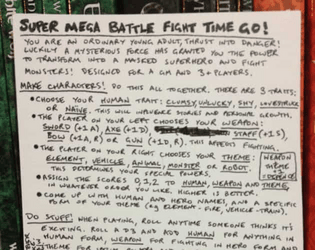 SUPER MEGA BATTLE FIGHT TIME GO!
YOU ARE AN ORDINARY YOUNG ADULT, THRUST INTO DANGER!
LUCKILY A MYSTERIOUS FORCE HAS GRANTED YOU THE POWER
TO TRANSFORM INTO A MASKED SUPERHERO AND FIGHT
MONSTERS! DESIGNED FOR A GM AND 3+ PLAYERS.
MAKE CHARACTERS! DO THIS ALL TOGETHER. THERE ARE 3 TRAITS;
• CHOOSE YOUR HUMAN TRAIT: CLUMSY, UNLUCKY, SHY, LOVESTRUCK
OR NAIVE. THIS WILL INFLUENCE STORIES AND PERSONAL GROWTH.
• THE PLAYER ON YOUR LEFT CHOOSES YOUR WEAPON:
SWORD (+1A), AXE (+1D), STAFF (+1S),
BOW (1A, R) OR GUN (+1D, R). THIS AFFECTS FIGHTING.
• THE PLAYER ON YOUR RIGHT CHOOSES YOUR THEME:
ELEMENT, VEHICLE, ANIMAL, MONSTER OR ROBOT.
THIS DETERMINES YOUR SPECIAL POWERS.
WEAPON
THEME
DEFENSE
• ASSIGN THE SCORES 0, 1, 2 TO HUMAN, WEAPON AND THEME,
IN WHATEVER ORDER YOU LIKE. HIGHER IS BETTER.
• COME UP WITH HUMAN AND HERO NAMES, AND A SPECIFIC
FORM OF YOUR THEME (EG ELEMENT-FIRE, VEHICLE-TRAIN).
DO STUFF! WHEN PLAYING, ROLL ANYTIME SOMEONE THINKS IT'S
EXCITING. ROLL A D3 AND ADD HUMAN FOR ANYTHING IN
HUMAN FORM, WEAPON FOR FIGHTING IN HERO FORM AND